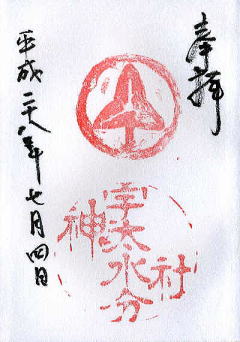 奉拝
宇太水分
神社
平成二十八年七月四日